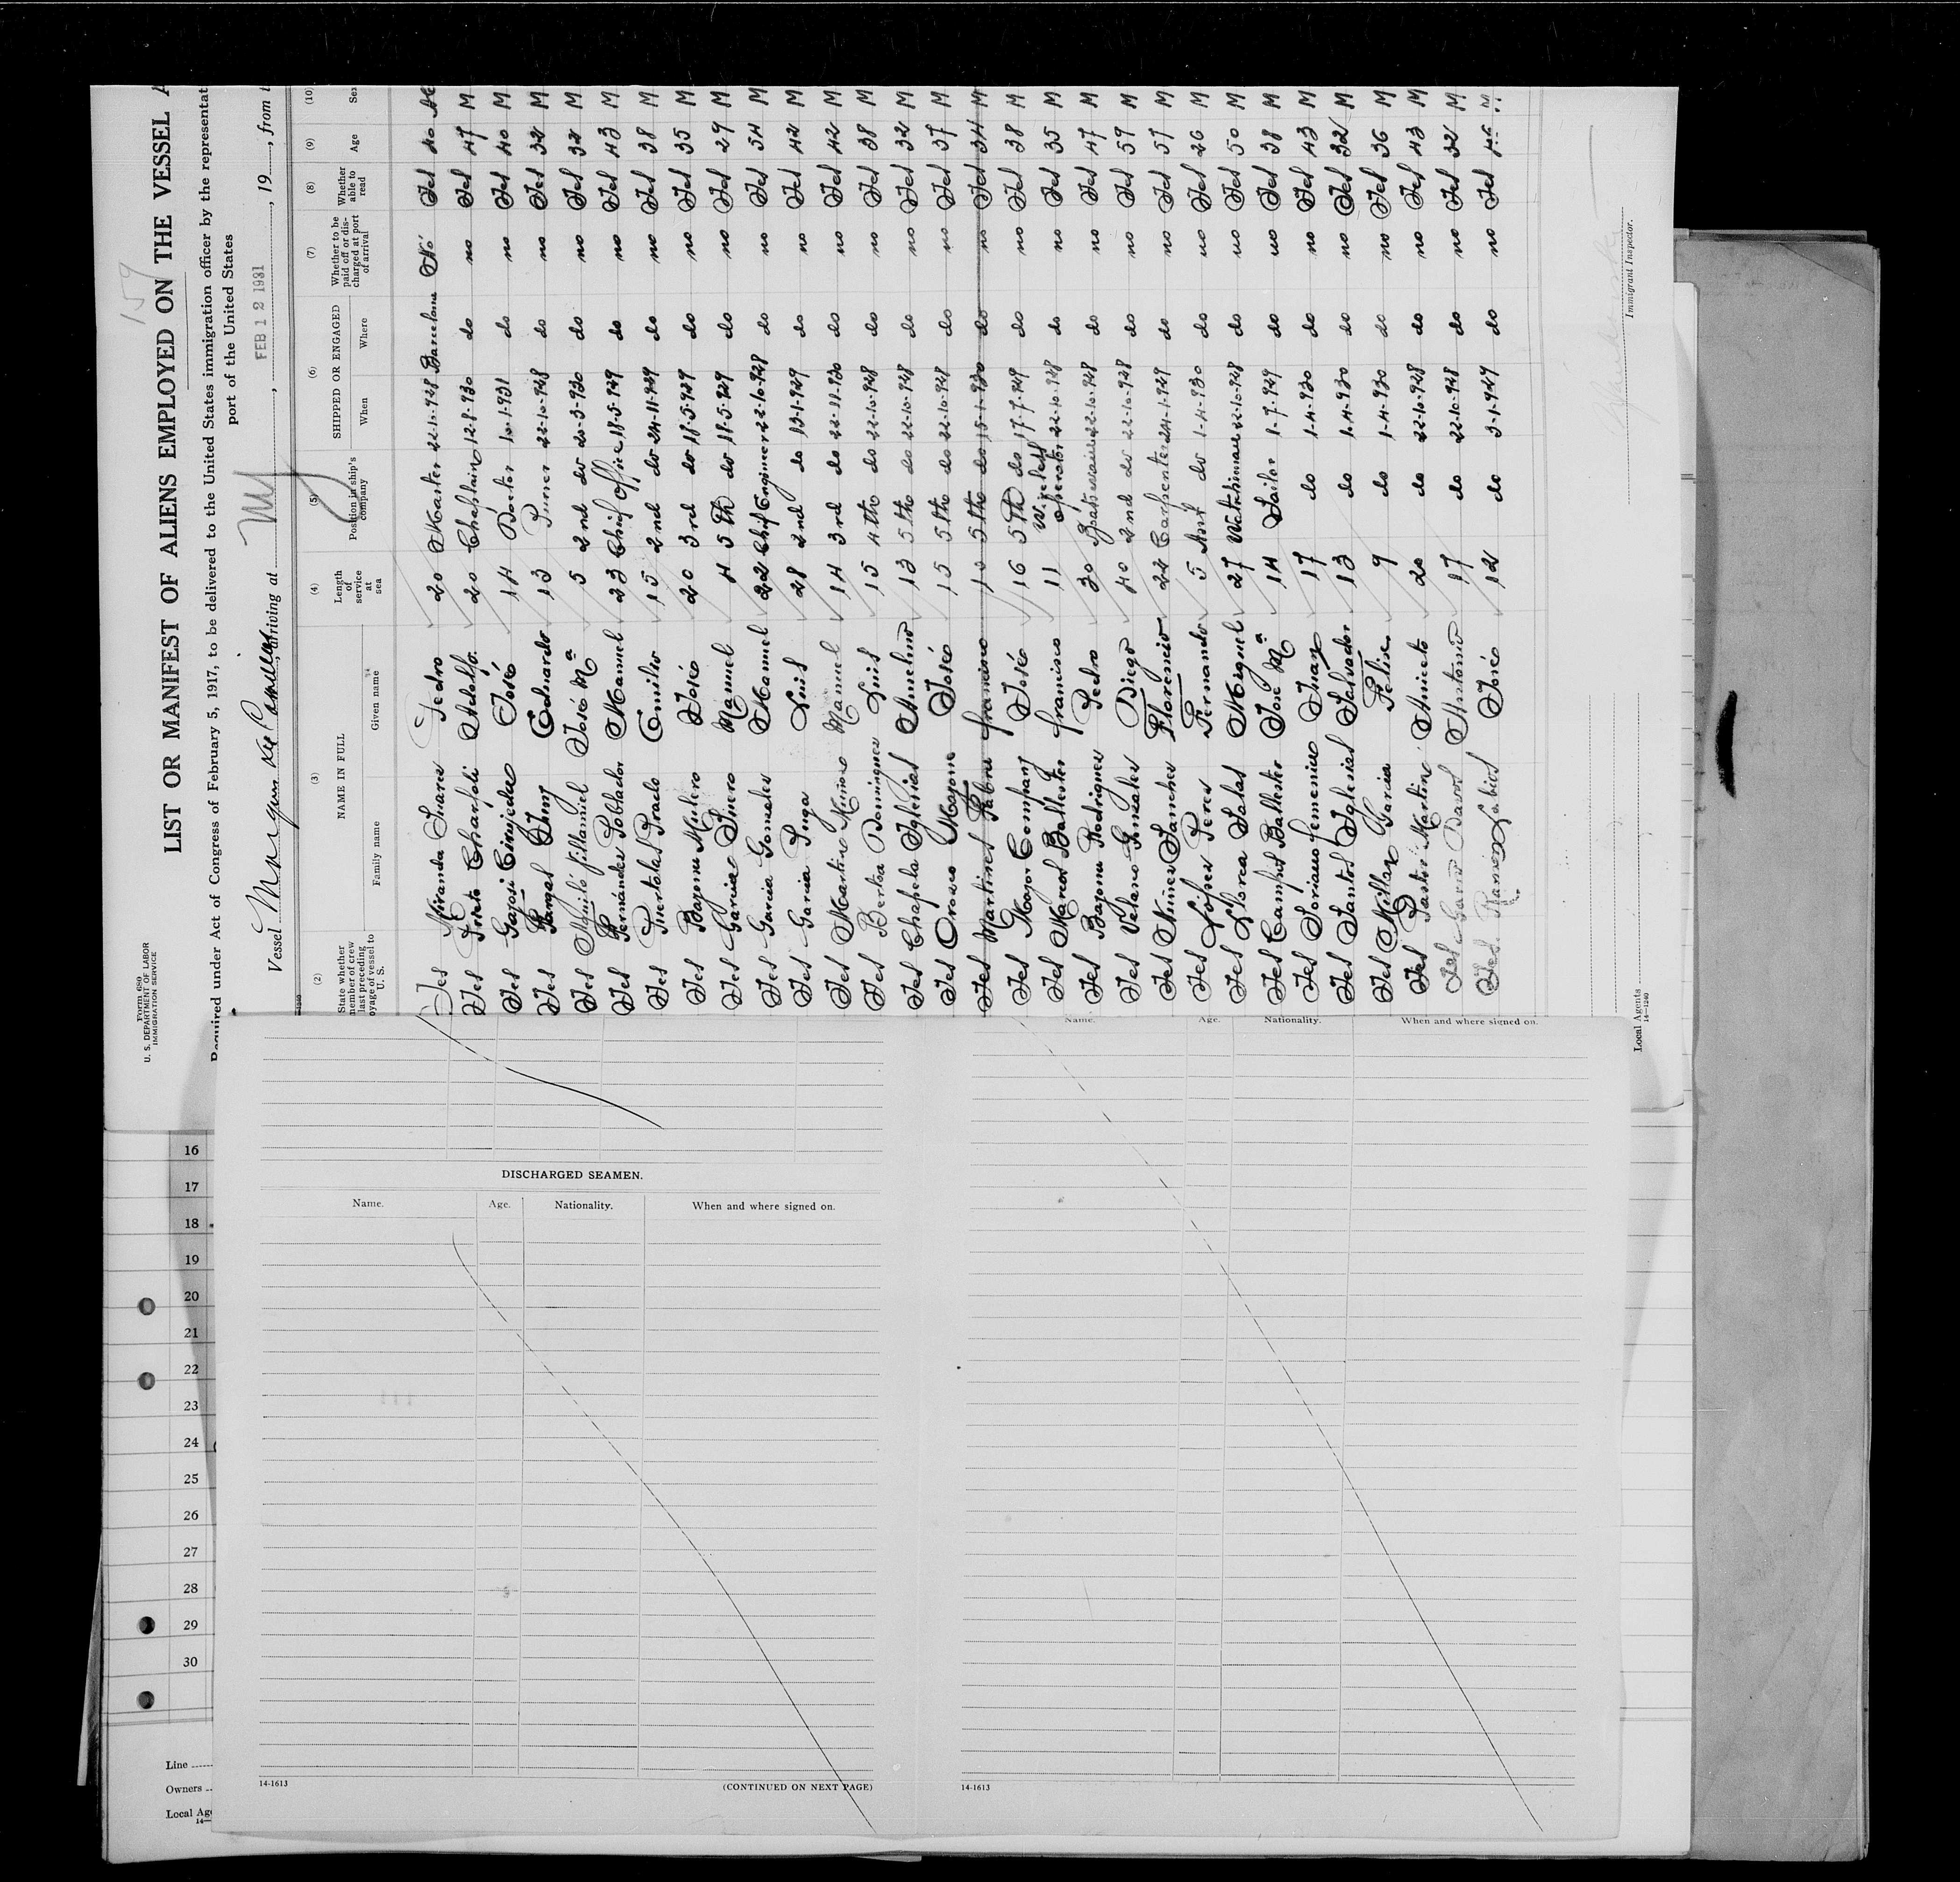 159
Form 680
U. S. DEPARTMENT OF LABOR
IMMIGRATION SERVICE
LIST OR MANIFEST OF ALIENS EMPLOYED ON THE VESSEL A
Required under Act of Congress of February 5, 1917, to be delivered to the United States immigration officer by the representat
port of the United States
Vessel Marques de Comillas, arriving at NY, FEB 12 1931, 19, from t
(2) (3) (4) (5) (6) (7) (8) (9) (10)
State whether member of crew last preceding voyage of vessel to U. S.
NAME IN FULL
Family name Given name
Length of service at sea
Position in ship's company
SHIPPED OR ENGAGED
When Where
Whether to be paid off or discharged at port of arrival
Whether able to read
Age
Sex
Yes Miranda Suares Pedro 20 Master 22-10-928 Barcelona No Yes 40
Yes Prieto Adolfo 20 Chaplain 12-8-930 do no Yes 47 M
Yes José 14 Doctor 10-1-931 do no Yes 40 M
Yes Rangel Eduardo 13 Purser 22-10-928 do no Yes 32 M
Yes José Mª 5 2nd do 20-3-930 do no Yes 32 M
Yes Fernández Poblador Manuel 23 Chief Office 18-5-929 do no Yes 43 M
Yes Emilio 15 2nd do 24-11-929 do no Yes 38 M
Yes Bazoma Mulero José 20 3rd do 18-5-929 do no Yes 35 M
Yes Garcia Manuel 4 5th do 18-5-929 do no Yes 29 M
Yes Garcia Gonzales Manuel 22 Chief Engineer 22-10-928 do no Yes 54 M
Yes Garcia Puga Luis 28 2nd do 13-1-929 do no Yes 42 M
Yes Martinez Manuel 14 3rd do 22-11-930 do no Yes 42 M
Yes Bertoa Dominguez Luis 15 4th do 22-10-928 do no Yes 38 M
Yes Chapela Iglesias Anselmo 13 5th do 22-10-928 do no Yes 32 M
Yes Orozco Mayone José 15 5th do 22-10-928 do no Yes 37 M
Yes Martinez Fabra Francisco 10 5th do 15-1-930 do no Yes 34 M
Yes Mayor Company José 16 5th do 17-7-929 do no Yes 38 M
Yes Marcos Ballester Francisco 11 Wireless operator 22-10-928 do no Yes 35 M
Yes Bazoma Rodrigues Pedro 30 22-10-928 do no Yes 47 M
Yes Velano Gonzales Diego 40 2nd do 22-10-928 do no Yes 59 M
Yes Nuñes Sanches Florencio 22 Carpenter 24-1-929 do no Yes 57 M
Yes López Peres Fernando 5 Asst do 1-4-930 do no Yes 26 M
Yes Llorca Salas Miguel 27 Watchman 22-10-928 do no Yes 50 M
Yes Campos Ballester José Mª 14 Sailor 1-7-929 do no Yes 38 M
Yes Soriano Semenico Juan 17 do 1-4-930 do no Yes 43 M
Yes Santos Iglesias Salvador 13 do 1-4-930 do no Yes 32 M
Yes Millan Garcia Felix 9 do 1-4-930 do no Yes 36 M
Yes Pastor Martine Aniceto 20 do 22-10-928 do no Yes 43 M
Yes Garcia Antonio 17 do 22-10-928 do no Yes 32 M
Yes José 12 do 3-1-929 do no Yes M
Local Agents
14-1240
Immigrant Inspector.
16
17
18
19
20
21
22
23
24
25
26
27
28
29
30
Line
Owners
Local Age
14—
DISCHARGED SEAMEN.
Name. Age. Nationality. When and where signed on.
14-1613
(CONTINUED ON NEXT PAGE)
Name. Age. Nationality. When and where signed on.
14-1613